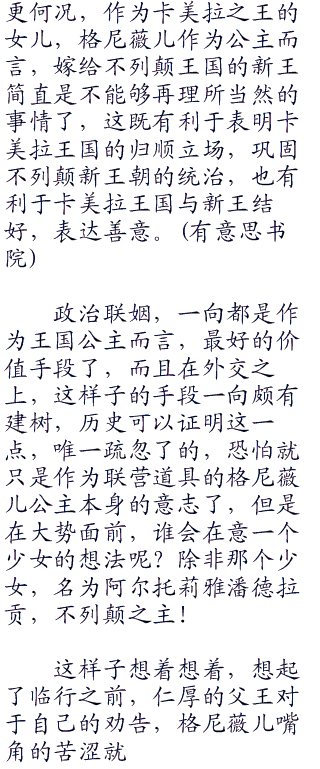 更何况，作为卡美拉之王的
女儿，格尼薇儿作为公主而
言，嫁给不列颠王国的新王
简直是不能够再理所当然的
事情了，这既有利于表明卡
美拉王国的归顺立场，巩固
不列颠新王朝的统治，也有
利于卡美拉王国与新王结
好，表达善意。（有意思书
院）
政治联姻，一向都是作
为王国公主而言，最好的价
值手段了，而且在外交之
上，这样子的手段一向颇有
建树，历史可以证明这一
点，唯一疏忽了的，恐怕就
只是作为联营道具的格尼薇
儿公主本身的意志了，但是
在大势面前，谁会在意一个
少女的想法呢？除非那个少
女，名为阿尔托莉雅潘德拉
贡，不列颠之主！
这样子想着想着，想起
了临行之前，仁厚的父王对
于自己的劝告，格尼薇儿嘴
角的苦涩就